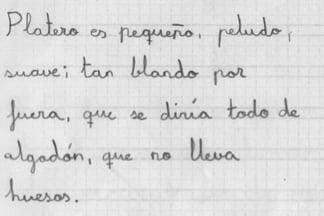 Platero es pequeño, peludo,
suave; tan blando por
fuera, que se diría todo de
algodón, que no lleva
huesos.